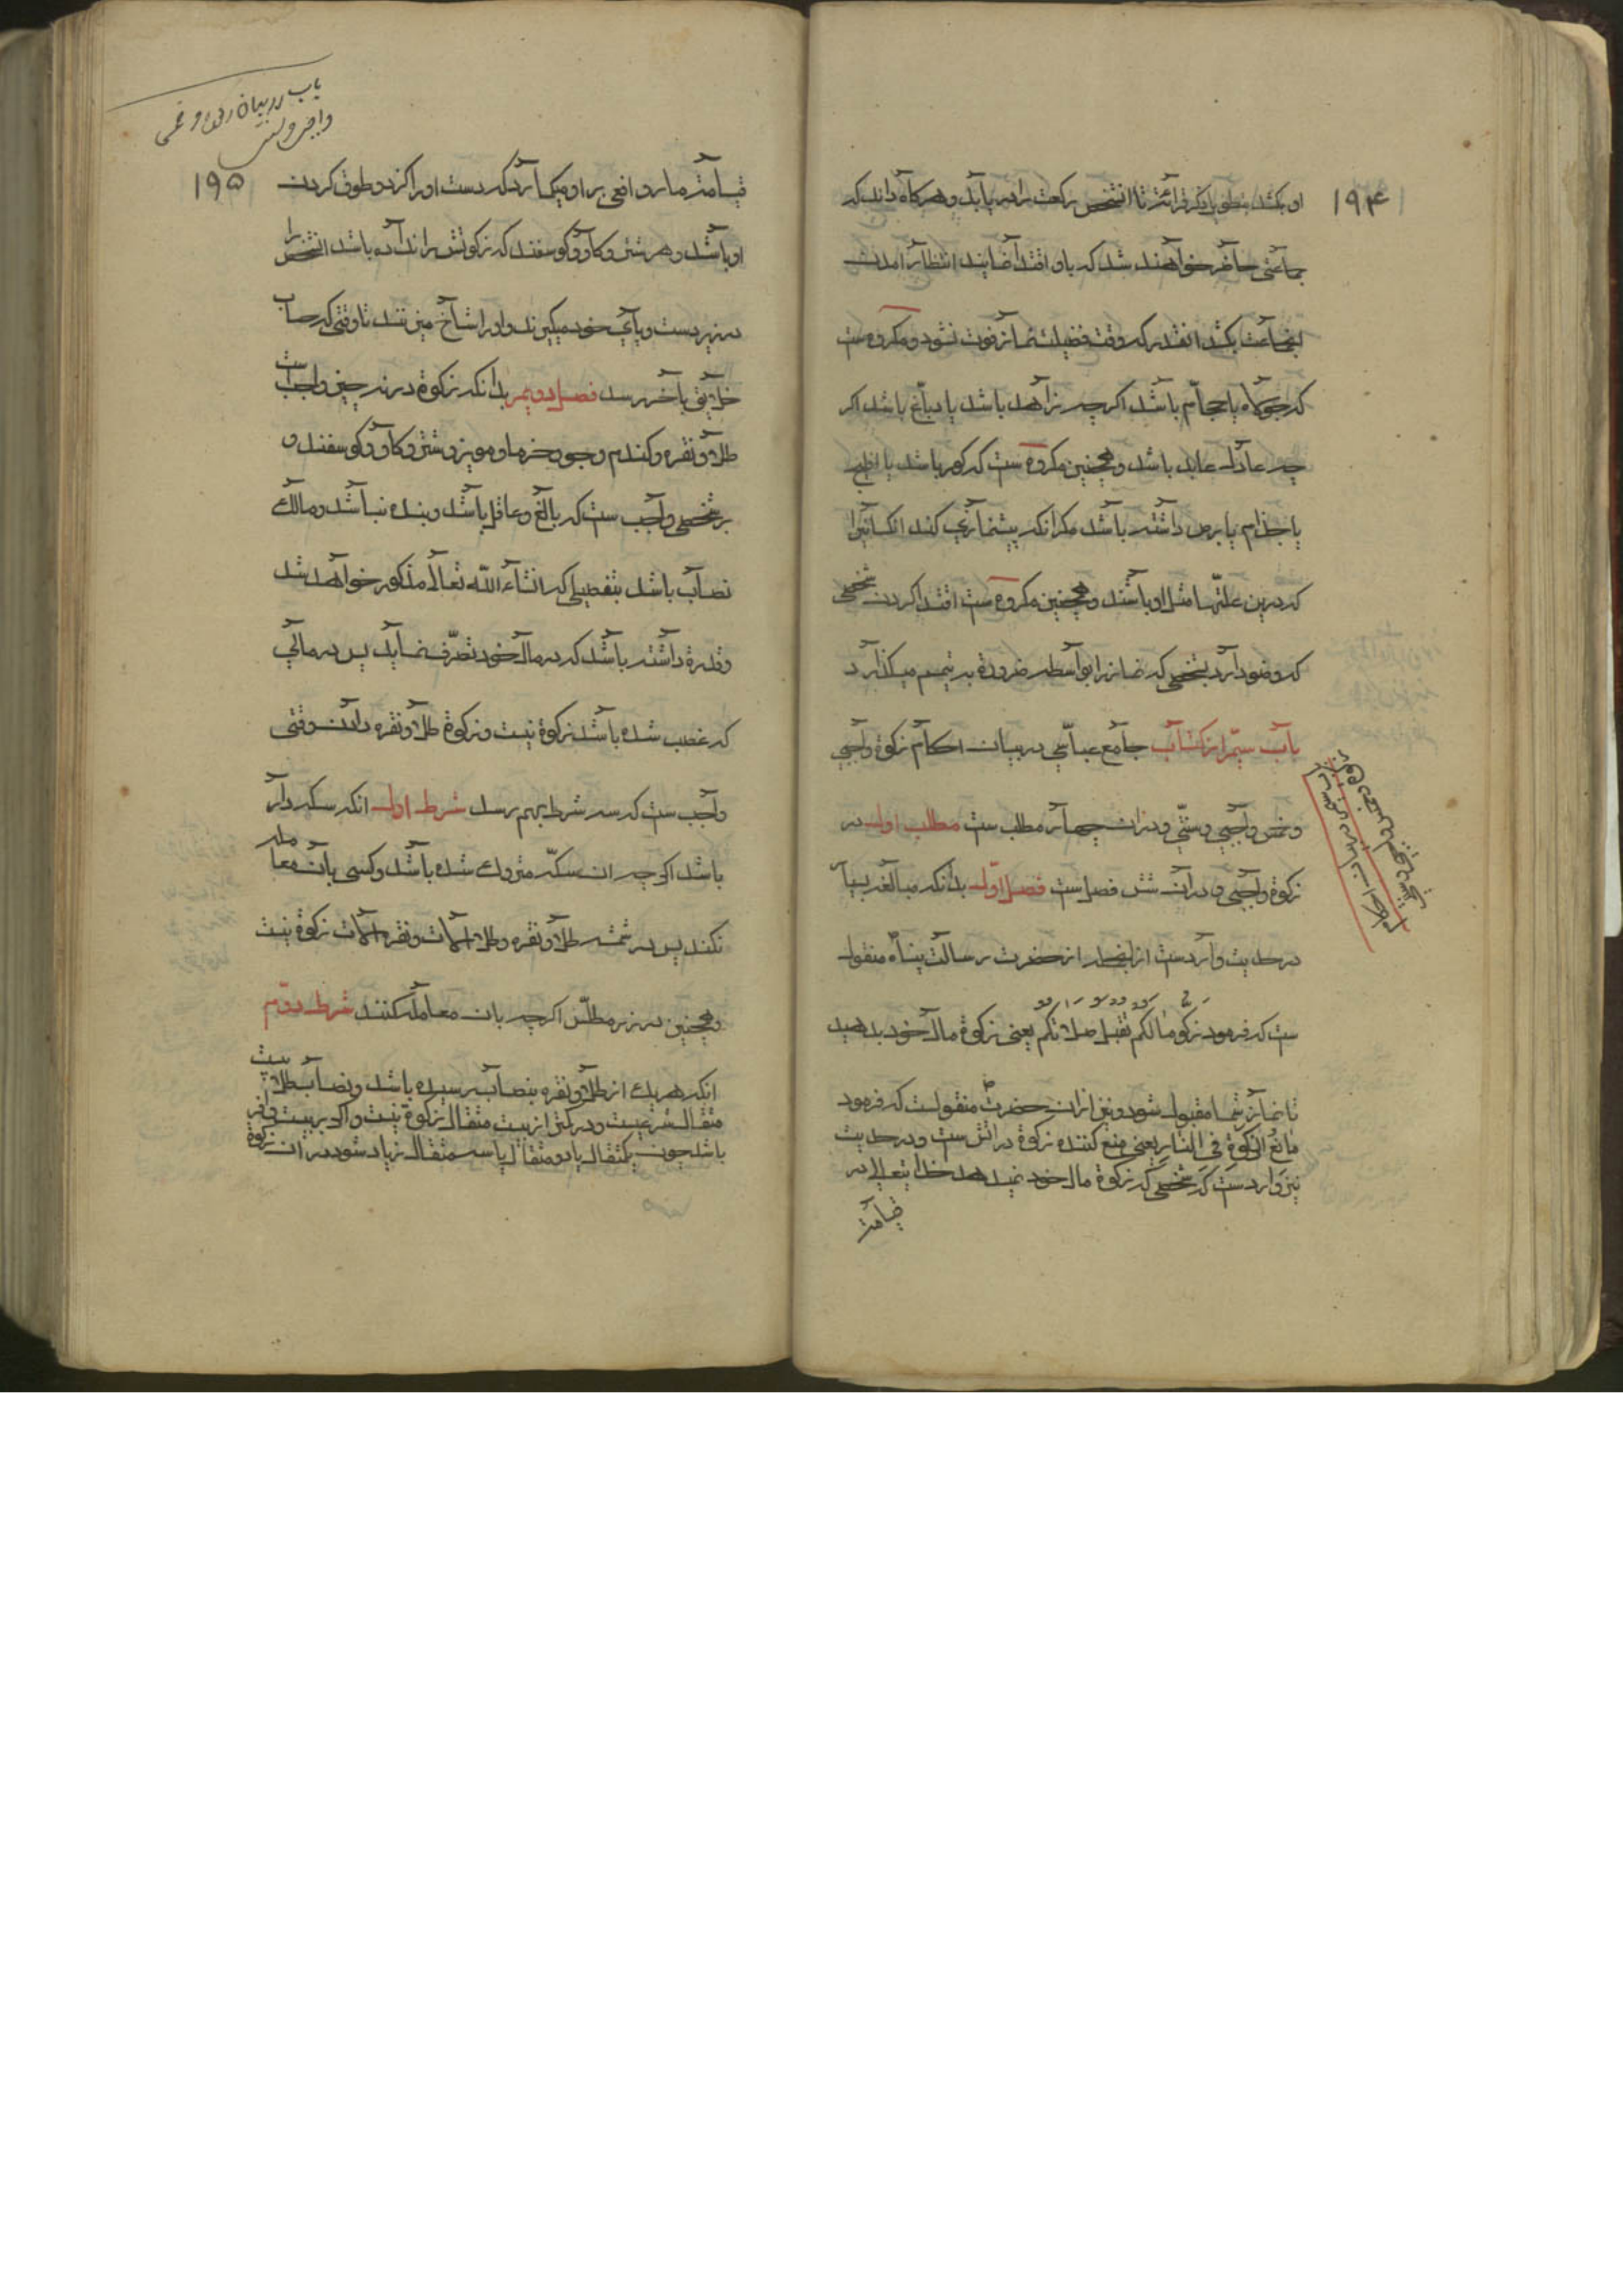 ۱۹۴
او بکشد بطول دیگر قرائتر تا انشخص رکعت را دریابد و هرکاه داند که
جماعتی حاضر خواهند شد که باو اقتدا نمایند انتظار امدن
انجماعت بکشد انقدر که وقت فضیلت نماز فوت نشود و مکروه ست
که جولاه یا حجام باشد اکرچه زاهد باشد یا دباغ باشد اکر
چه عادل عابد باشد و همچنین مکروه ست که کور باشد یا افلج
یا جذام یا برص داشته باشد مکر انکه پیشنمازی کند انکسانیرا
که درین علتها مثل او باشند و همچنین مکروه ست اقتدا کردن شخصی
که وضو دارد بشخصی که نماز را بواسطه ضرورة به تیمم میکذارد
باب سیم از کتاب جامع عباسی در بیان احکام زکوة واجبی
و خمس واجبی و سنتی و دران چهار مطلب ست مطلب اول در
زکوة واجبی و دران شش فصل ست فصل اول بدانکه مبالغه بسیار
در حدیث وارد ست از انجمله از حضرت رسالت پناه منقول
ست که فرمود زکو مالکم تقبل صلاتکم یعنی زکوة مال خود بدهید
تا نماز شما مقبول شود و نیز از ان حضرت منقولست که فرمود
مانع الزکوة فی النار یعنی منع کننده زکوة در اتش ست و در حدیث
نیز وارد ست که شخصی که زکوة مال خود نمیدهد خدایتعالی در
قیامتر
باب سیم در بیان احکام
زکوة و خمس واجبی و سنتی
باب در بیان زکوة و خمس
واجبی و سنتی
۱۹۵
قیامتر مار و افعی بر او میکمارد که دست او را کزد و طوق کردن
او باشد و هر شتر و کاو و کوسفند که زکوتش را نداده باشد انشخص را
در زیر دست و پای خود میکیرند و او را شاخ میزنند تا وقتی که حساب
خلایق باخر رسد فصل دویم بدانکه زکوة در نه چیز واجب ست
طلا و نقره و کندم و جو و خرما و مویز و شتر و کاو و کوسفند و
بر شخصی واجب ست که بالغ و عاقل باشد و بنده نباشد و مالک
نصاب باشد بتفصیلی که انشاء الله تعالی مذکور خواهد شد
و قدرة داشته باشد که در مال خود تصرف نماید پس در مالی
که غصب شده باشد زکوة نیست و زکوة طلا و نقره دادن وقتی
واجب ست که سه شرط بهم رسد شرط اول انکه سکه دار
باشد اکرچه ان سکه متروک شده باشد و کسی بان معامله
نکند پس در شمشه طلا و نقره و طلا الات و نقره الات زکوة نیست
و همچنین در زر مطلس اکرچه بان معامله کنند شرط دوم
انکه هر یک از طلا و نقره بنصاب رسیده باشد و نصاب طلا بیست
مثقال شرعیست و در کمتر از بیست مثقال زکوة نیست و اکر بر بیست وافر
باشد چون یکمثقال یا دو مثقال یا سه مثقال زیاد شود در ان زکوة